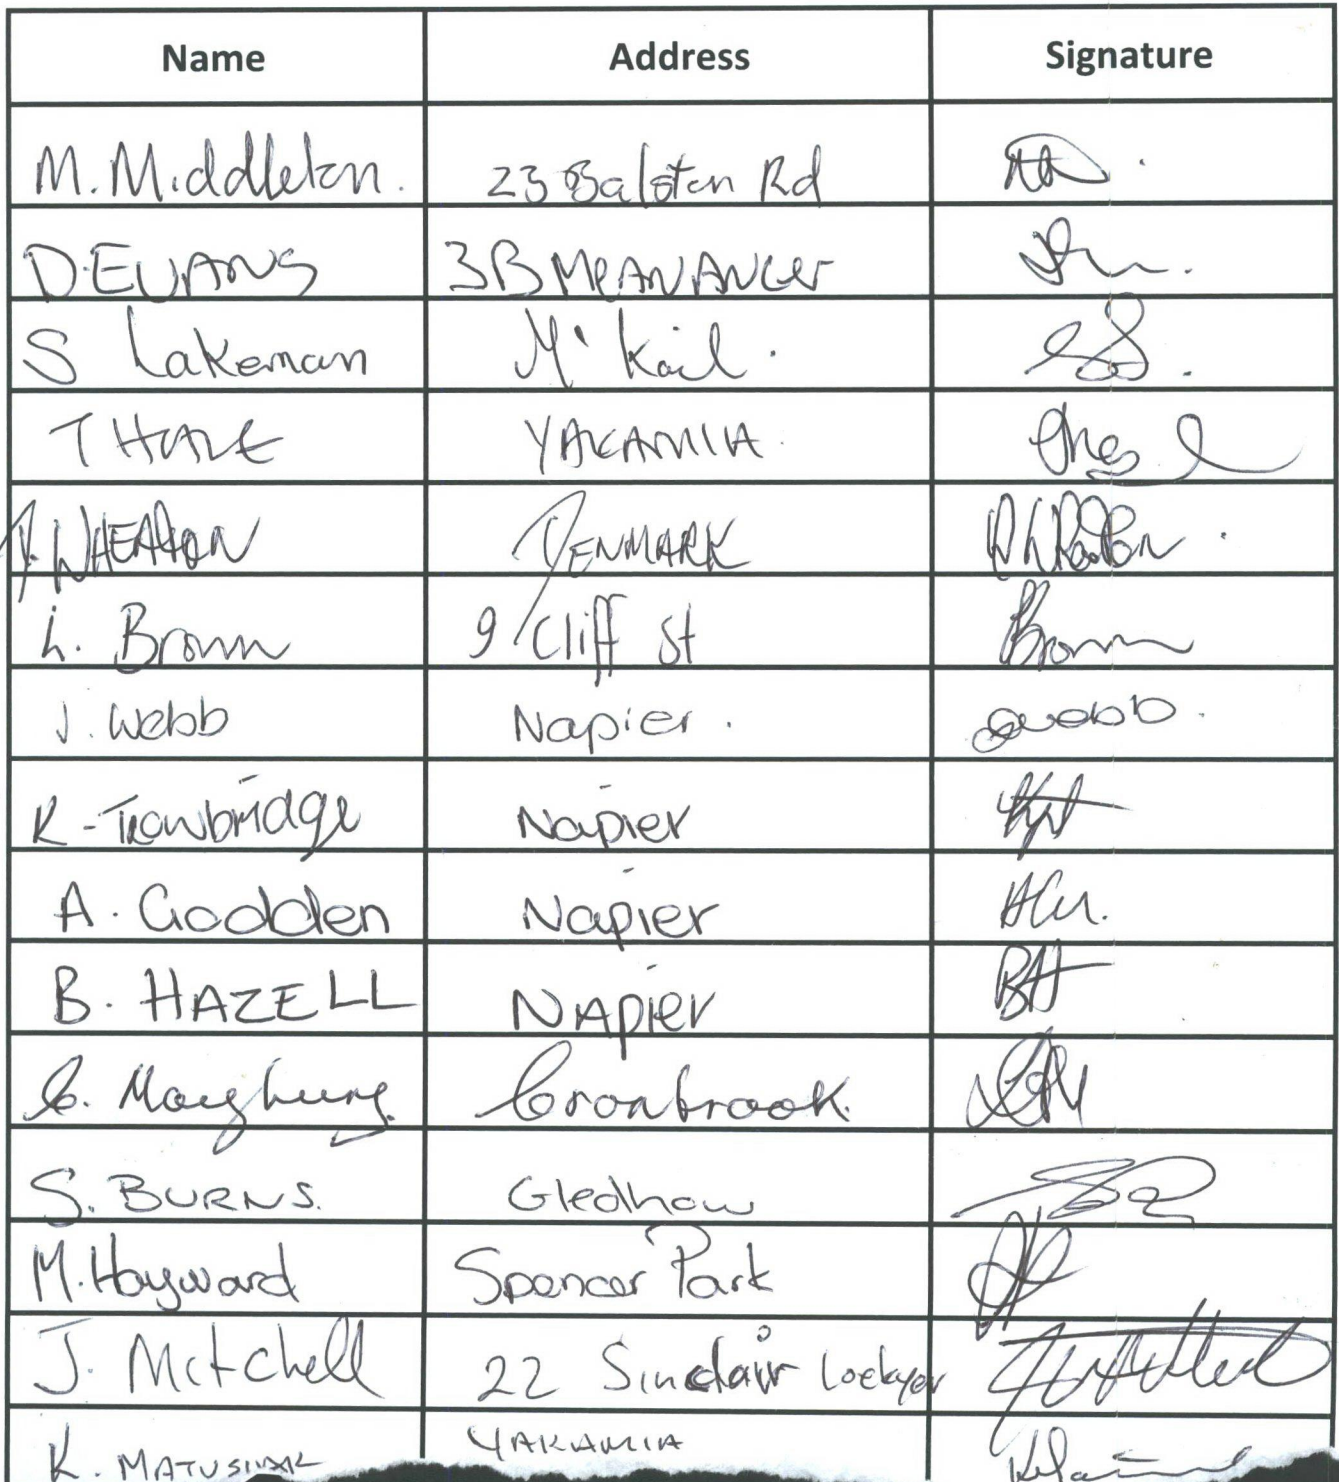 Name Address Signature
M. Middleton. 23 Balston Rd
D. EVANS 3B MEANANGER
S Lakeman M'Kail.
T HALE YAKAMIA.
WHEATON DENMARK
L. Brown 9 Cliff St Brown
J. Webb Napier. JWebb.
K-Trowbridge Napier
A. Godden Napier
B. HAZELL NAPIER BH
Cranbrook.
S. BURNS. Gledhow
M. Hayward Spencer Park
J. Mitchell 22 Sinclair Lockyer
K. MATUSIAK YAKAMIA